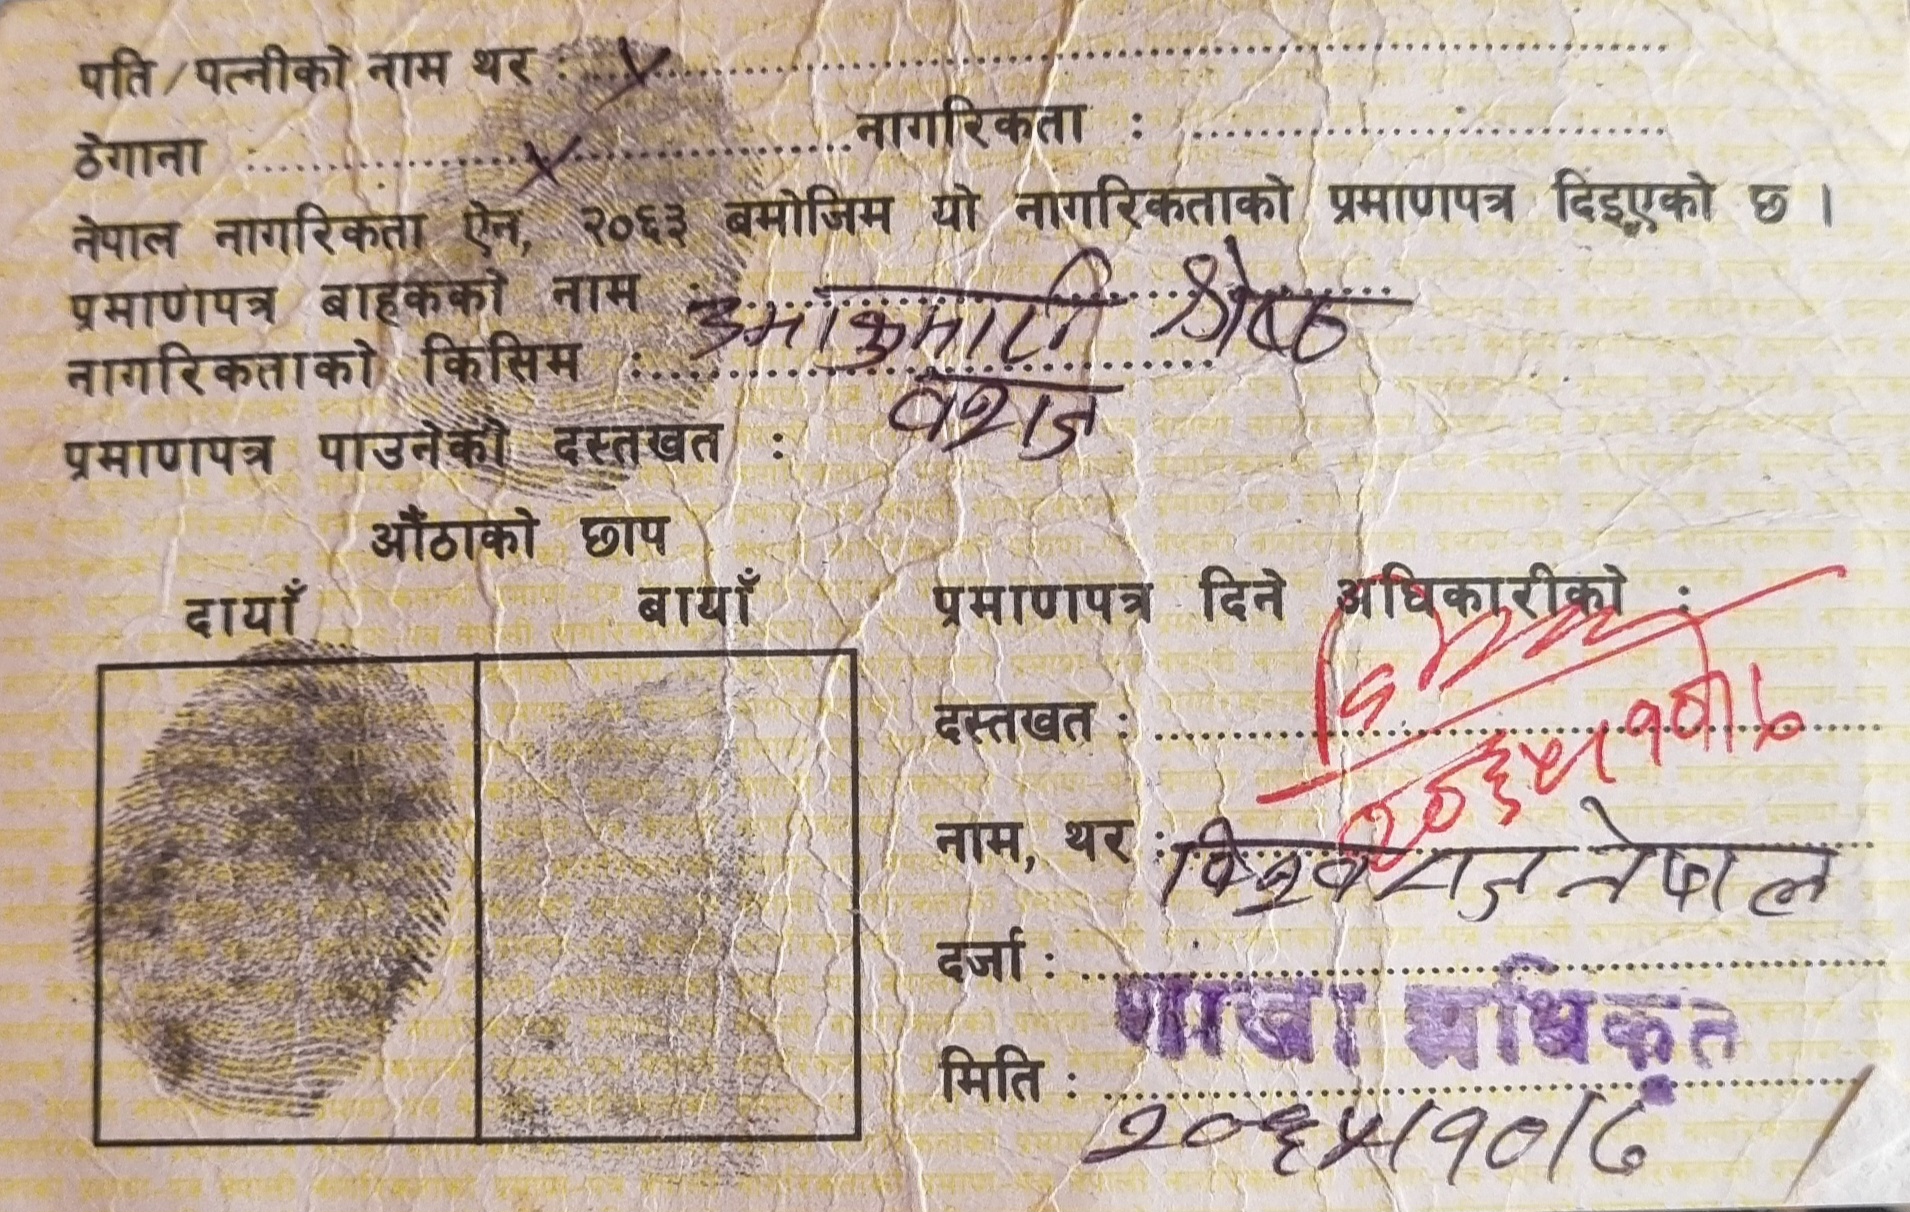 पति/पत्नीको नाम थर : x
ठेगाना : x नागरिकता :
नेपाल नागरिकता ऐन, २०६३ बमोजिम यो नागरिकताको प्रमाणपत्र दिइएको छ ।
प्रमाणपत्र बाहकको नाम : उमाकुमारी श्रेष्ठ
नागरिकताको किसिम : वंशज
प्रमाणपत्र पाउनेको दस्तखत :
औंठाको छाप
दायाँ बायाँ
प्रमाणपत्र दिने अधिकारीको :
दस्तखत : २०६५।१०।७
नाम, थर : विश्वराज नेपाल
दर्जा : शाखा अधिकृत
मिति : २०६५।१०।७